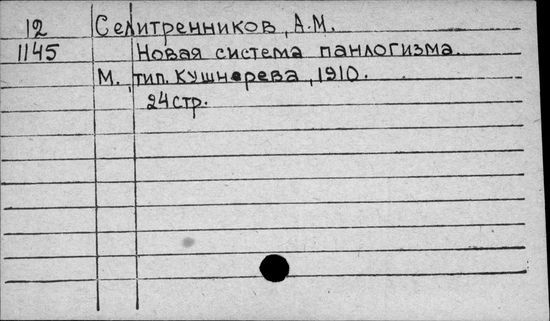 12 Селитренников, А.М.
1145 Новая система панлогизма.
М., тип. Кушнерева, 1910.
24 стр.